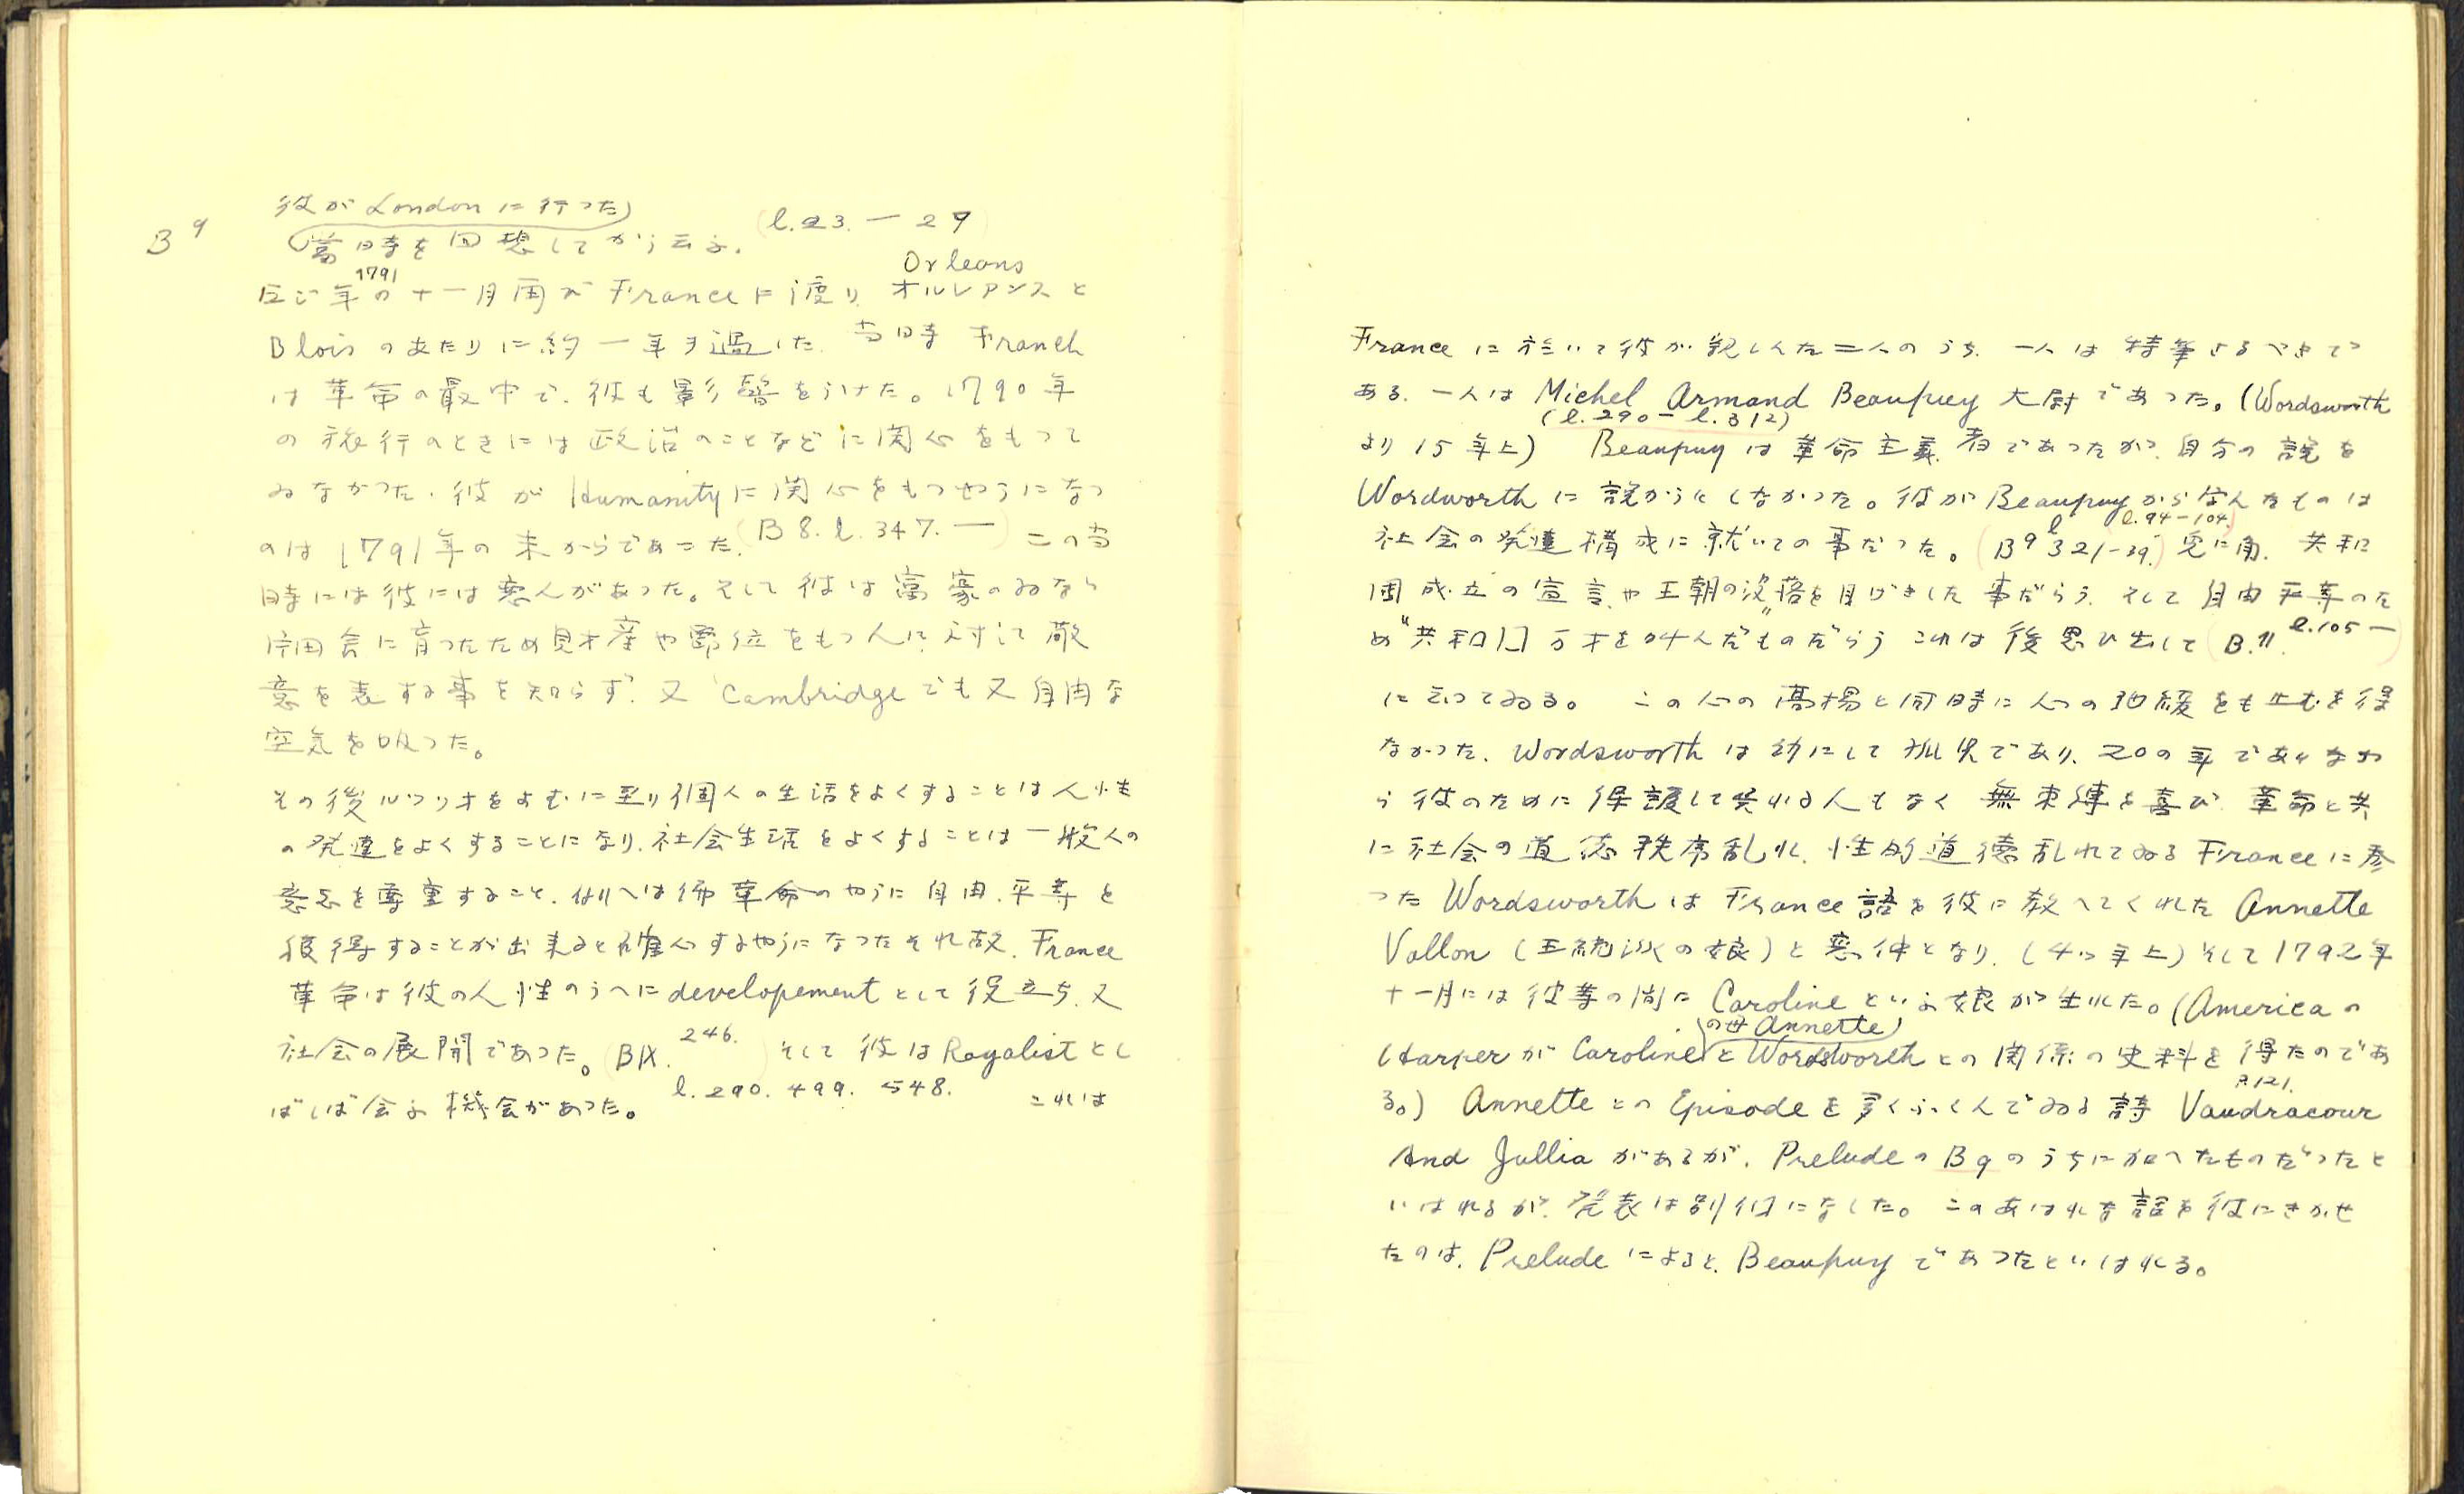 彼がLondonに行った
B9 當時を回想してから云ふ. (l.23.— 29)
同じ年の1791十一月再びFranceに渡り オルレアンスOrleansと
Bloisのあたりに約一年ヲ過した. 当時 Franch
は革命の最中で、彼も影響をうけた。1790年
の旅行のときには政治のことなどに関心をもって
ゐなかった. 彼が Humanityに関心をもつやうになつ
のは1791年の末からであった. (B 8. l. 347. —) この当
時には彼には恋人があった。そして彼は富豪のゐない
片田舎に育ったため財産や爵位をもつ人に対して敬
意を表する事を知らず. 又 Cambridgeでも又自由な
空気を吸った。
その後ルッソオをよむに至り個人の生活をよくすることは人性
の発達をよくすることになり、社会生活をよくすることは一般人の
意志を尊重すること、例へは佛革命のやうに自由、平等を
獲得することが出来ると確心するやうになったそれ故、France
革命は彼の人性のうへにdevelopementとして役立ち、又
社会の展開であった。(BIX. 246.) そして彼はRoyalistとし
ばしば会ふ機会があった。 l. 290. 499. 548. これは
Franceに於いて彼が親しんだ二人のうち、一人は特筆さるべきで
ある. 一人は Michel Armand Beaupuy 大尉であった。(Wordsworth
より15年上) (l.290 — l.312) Beaupuyは革命主義者であったが、自分の説を
Wordworthに説かうとしなかった。彼がBeaupuyから学んだものは
社会の発達構成に就いての事だった。(B9 l 321-39.) l.94-104. 兎に角、共和
国成立の宣言や王朝の没落を目げきした事だらう. そして自由平等のた
め"共和国万才"を叫んだものだらう これは後思ひ出して (B.11. l.105 —)
に云ってゐる。 この心の高揚と同時に心の弛緩をも止むを得
なかった. Wordsworthは幼にして孤児であり、20の年でありなが
ら彼のために保護して呉れる人もなく 無束縛を喜び 革命と共
に社会の道徳秩序乱れ、性的道徳乱れてゐる Franceに参
った WordsworthはFrance語を彼に教へてくれた Annette
Vallon (王統派の娘)と恋仲となり、(4つ年上) そして1792年
十一月には彼等の間に Carolineといふ娘が生れた。(Americaの
Harperが Carolineの母Annetteと Wordsworthとの関係の史料を得たのであ
る。) Annetteとの Episodeを多くふくんでゐる詩 P.121. Vaudracour
And Julliaがあるが、PreludeのB9のうちに加へたものだったと
いはれるが、発表は別個になした。このあはれな話を彼にきかせ
たのは、Preludeによると、Beaupuyであったといはれる。